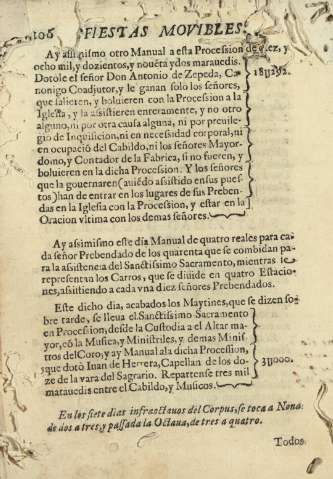 106 FIESTAS MOVIBLES.
Ay assimismo otro Manual a esta Procession de diez, y
ocho mil, y dozientos, y nouẽta ydos marauedis.
Dotòle el señor Don Antonio de Zepeda, Ca-
nonigo Coadjutor, y le ganan solo los señores,
que salieren, y boluieren con la Procession a la
Iglesia, y la assistieren enteramente, y no otro
alguno, ni por otra causa alguna, ni por preuile-
gio de Inquisicion, ni en necessidad corporal, ni
en ocupaciõ del Cabildo, ni los señores Mayor-
domo, y Contador de la Fabrica, si no fueren, y
boluieren en la dicha Procession. Y los señores
que la gouernaren (auiẽdo assistido en sus pues
tos) han de entrar en los lugares de sus Preben-
das en la Iglesia con la Procession, y estar en la
Oracion vltima con los demas señores.
18U292.
Ay assimismo este dia Manual de quatro reales para ca-
da señor Prebendado de los quarenta que se combidan pa-
ra la assistencia del Sanctissimo Sacramento, mientras se
representan los Carros, que se diuide en quatro Estacio-
nes, assistiendo a cada vna diez señores Prebendados.
Este dicho dia, acabados los Maytines, que se dizen so-
bre tarde, se lleua el Sanctissimo Sacramento
en Procession, desde la Custodia a el Altar ma-
yor, cõ la Musica, y Ministriles, y demas Minis-
tros del Coro, y ay Manual a la dicha Procession,
que dotò Iuan de Herrera, Capellan de los do-
ze de la vara del Sagrario. Repartense tres mil
marauedis entre el Cabildo, y Musicos.
3U000.
En los siete dias infraoctauos del Corpus, se toca a Nona
de dos a tres, y passada la Octaua, de tres a quatro.
Todos